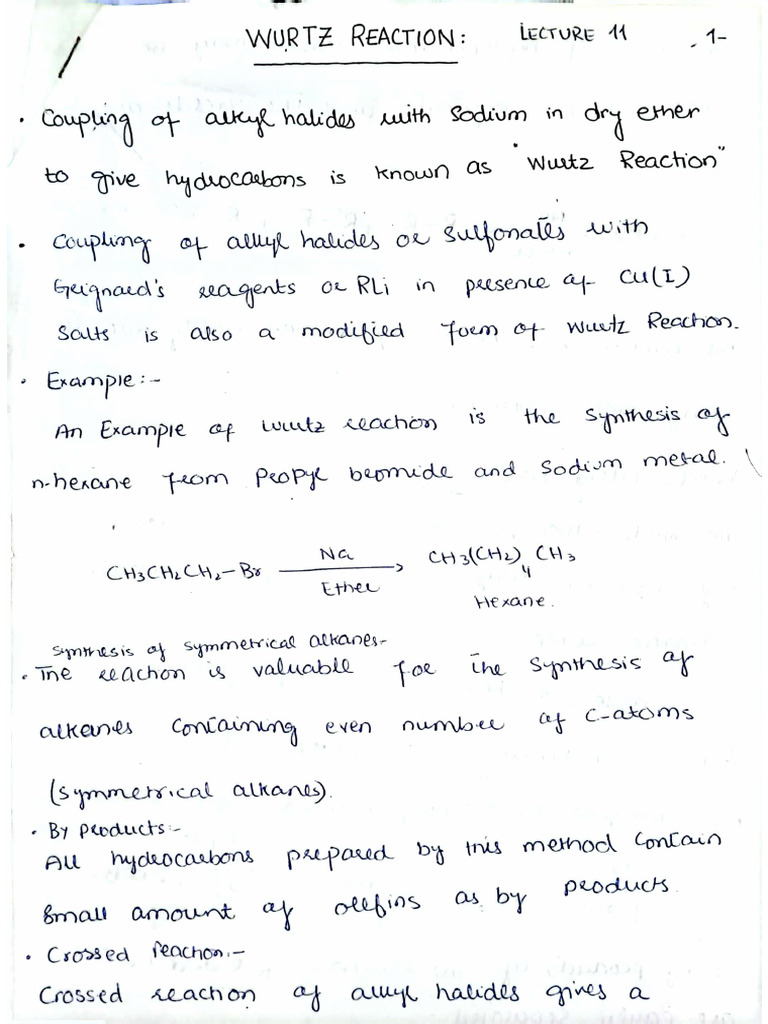 WURTZ REACTION: LECTURE 11 -1-
• Coupling of alkyl halides with Sodium in dry ether
to give hydrocarbons is known as "Wurtz Reaction"
• Coupling of alkyl halides or Sulfonates with
Grignard's reagents or RLi in presence of Cu(I)
Salts is also a modified form of Wurtz Reaction.
• Example:-
An Example of Wurtz reaction is the synthesis of
n-hexane from Propyl bromide and Sodium metal.
CH3CH2CH2-Br Na Ether → CH3(CH2)4 CH3
Hexane.
Synthesis of symmetrical alkanes-
• The reaction is valuable for the synthesis of
alkanes containing even number of C-atoms
(symmetrical alkanes).
• By products:-
All hydrocarbons prepared by this method contain
Small amount of olefins as by products.
• Crossed reaction:-
Crossed reaction of alkyl halides gives a